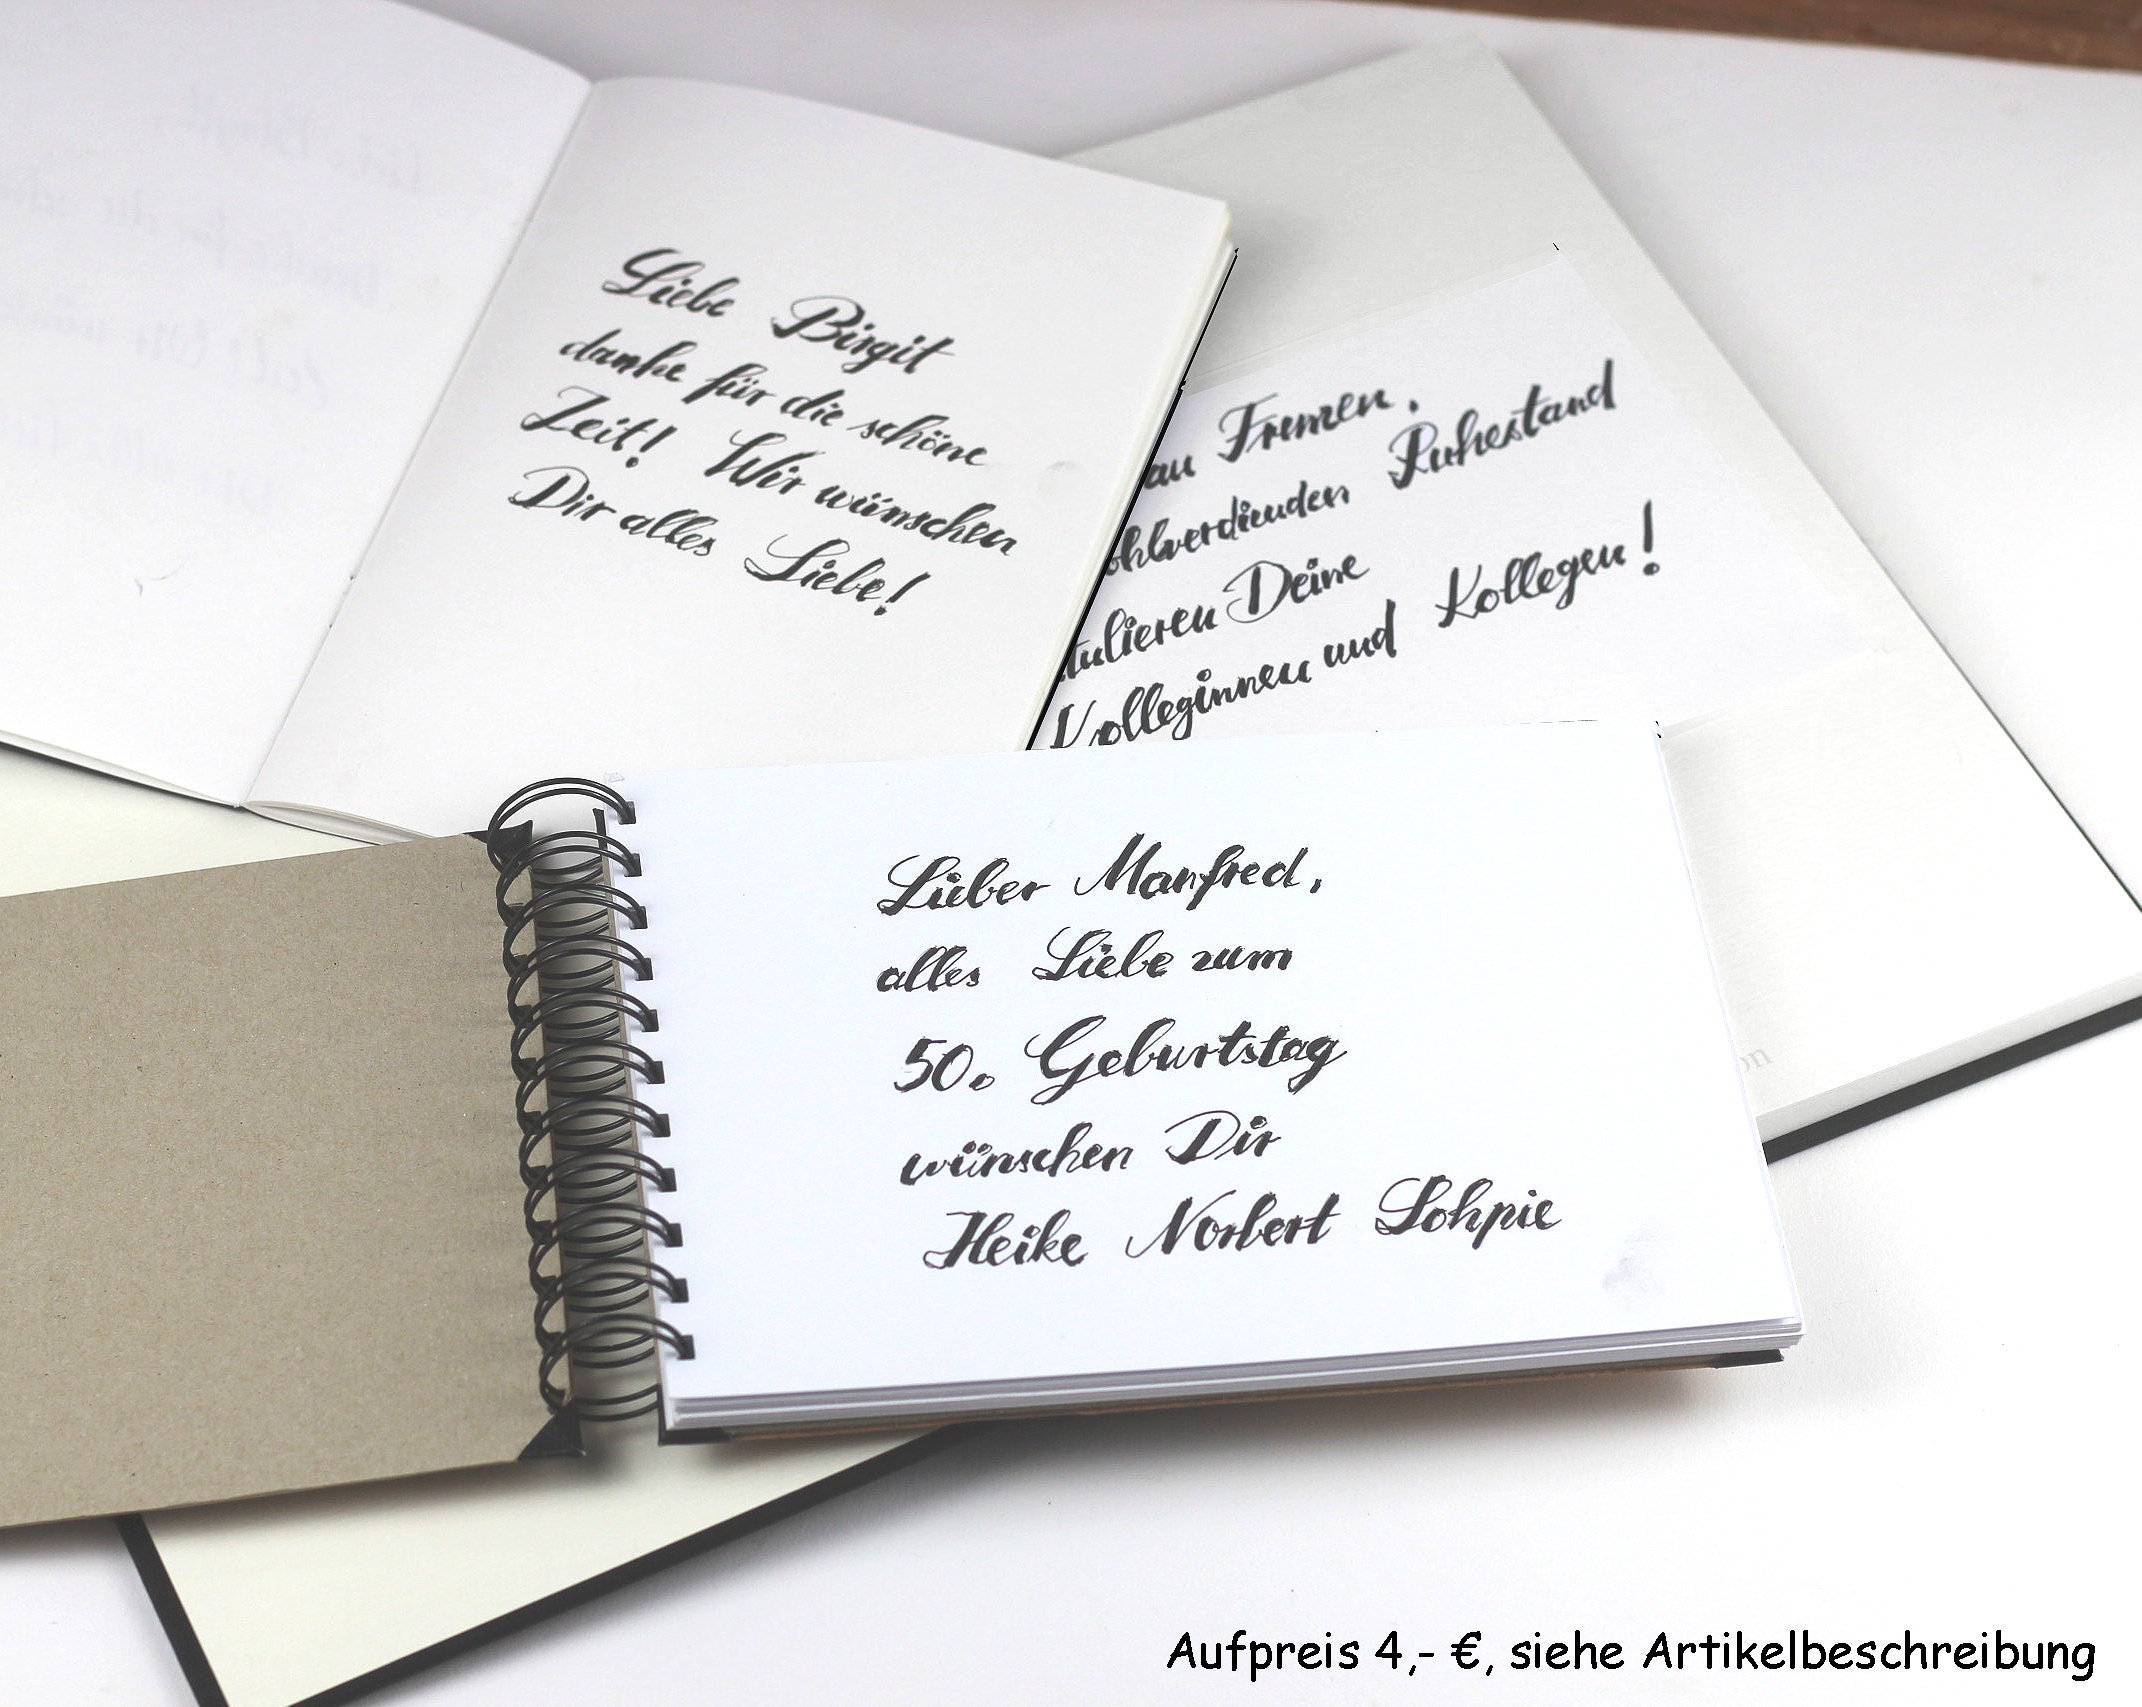 Liebe Birgit
danke für die schöne
Zeit! Wir wünschen
Dir alles Liebe!
au Fremen,
ohlverdienden Ruhestand
tulieren Deine
Kolleginnen und Kollegen!
Lieber Manfred,
alles Liebe zum
50. Geburtstag
wünschen Dir
Heike Norbert Sohpie
on
Aufpreis 4,- €, siehe Artikelbeschreibung